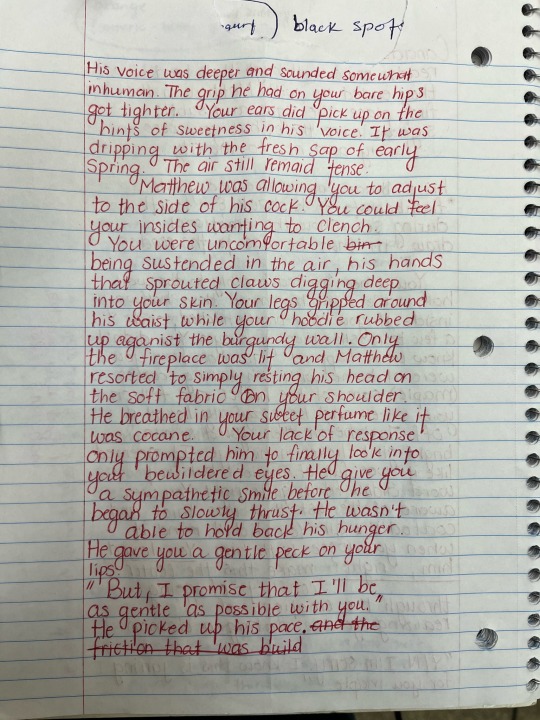 black spot
His voice was deeper and sounded somewhat
inhuman. The grip he had on your bare hips
got tighter. Your ears did pick up on the
hints of sweetness in his voice. It was
dripping with the fresh sap of early
Spring. The air still remaid tense.
Matthew was allowing you to adjust
to the side of his cock. You could feel
your insides wanting to clench.
You were uncomfortable bin
being sustended in the air, his hands
that sprouted claws digging deep
into your skin. Your legs gripped around
his waist while your hoodie rubbed
up aganist the burgundy wall. Only
the fireplace was lit and Matthew
resorted to simply resting his head on
the soft fabric on your shoulder.
He breathed in your sweet perfume like it
was cocane. Your lack of response
only prompted him to finally look into
your bewildered eyes. He give you
a sympathetic smile before he
began to slowly thrust. He wasn't
able to hold back his hunger.
He gave you a gentle peck on your
lips.
"But, I promise that I'll be
as gentle as possible with you."
He picked up his pace. and the
friction that was build